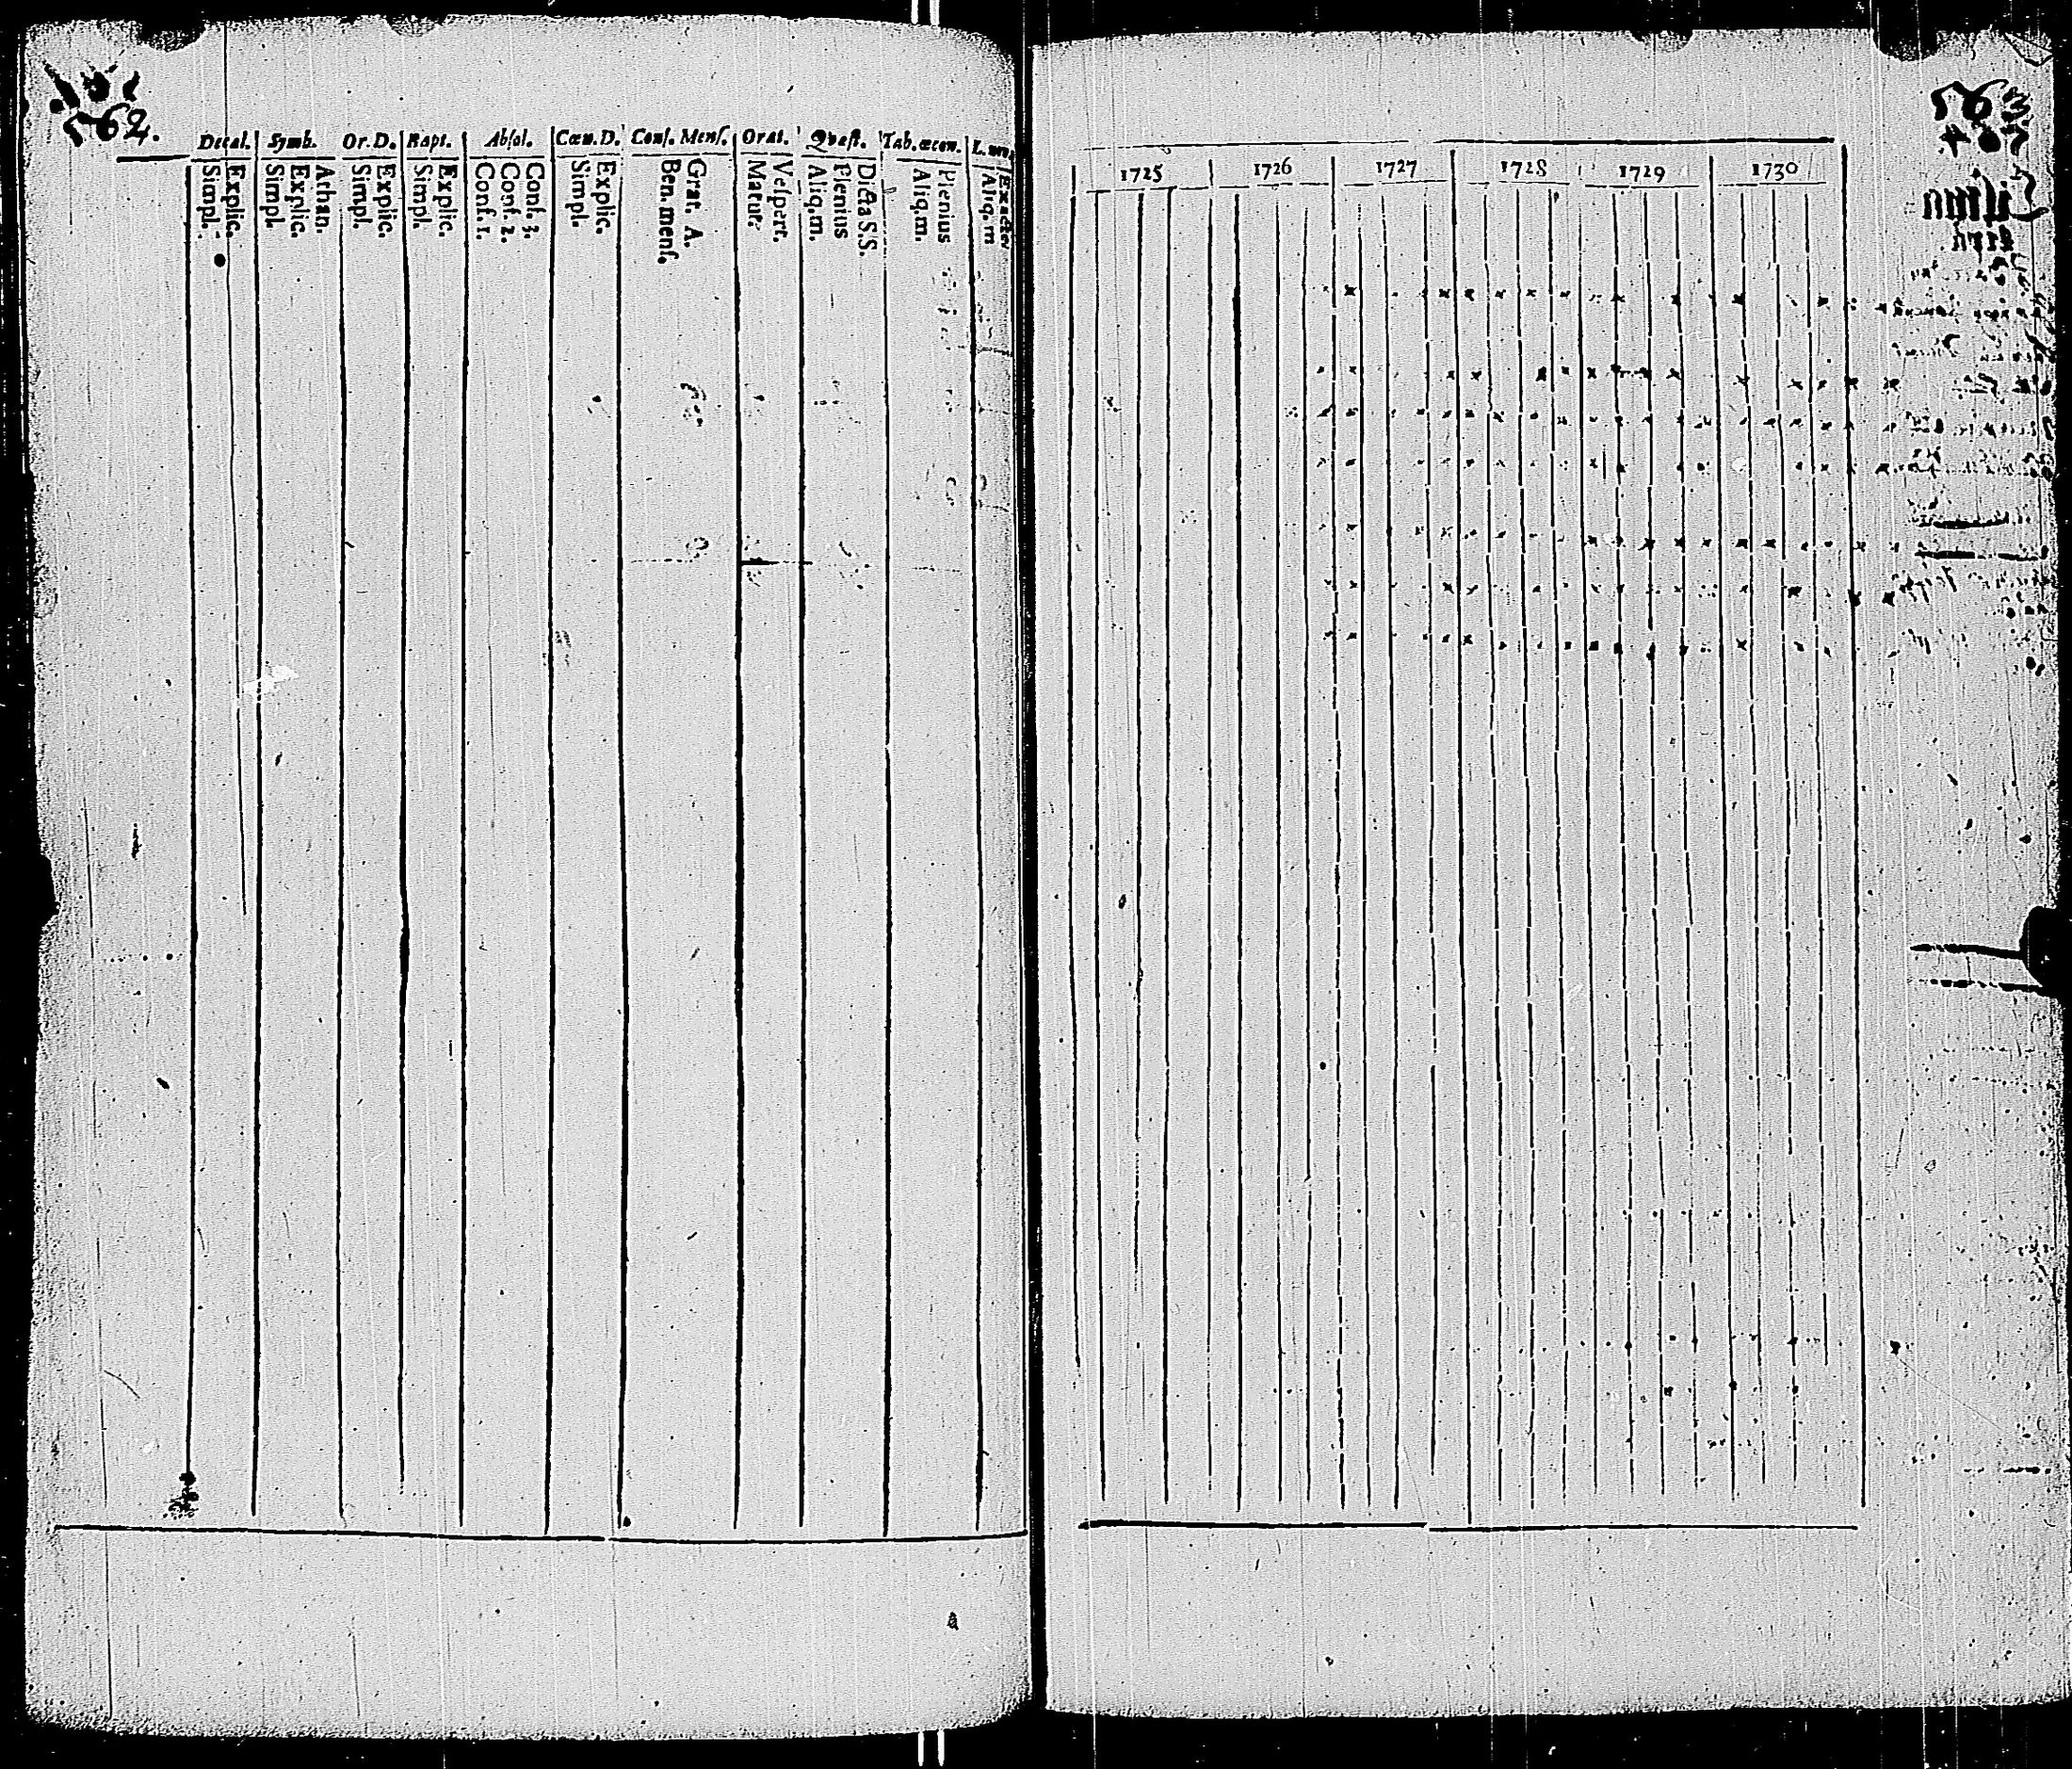 562.
Decal. Symb. Or. D. Bapt. Absol. Cœn. D. Conf. Mens. Orat. Quæst. Tab. œcon. L.
Explic.
Simpl.
Athan.
Explic.
Simpl.
Explic.
Simpl.
Explic.
Simpl.
Conf. 3.
Conf. 2.
Conf. 1.
Explic.
Simpl.
Grat. A.
Ben. mens.
Vespert.
Matut.
Dicta S.S.
Plenius
Aliq.m.
Plenius
Aliq.m.
Exacter
Aliq.m
563
1725 1726 1727 1728 1729 1730